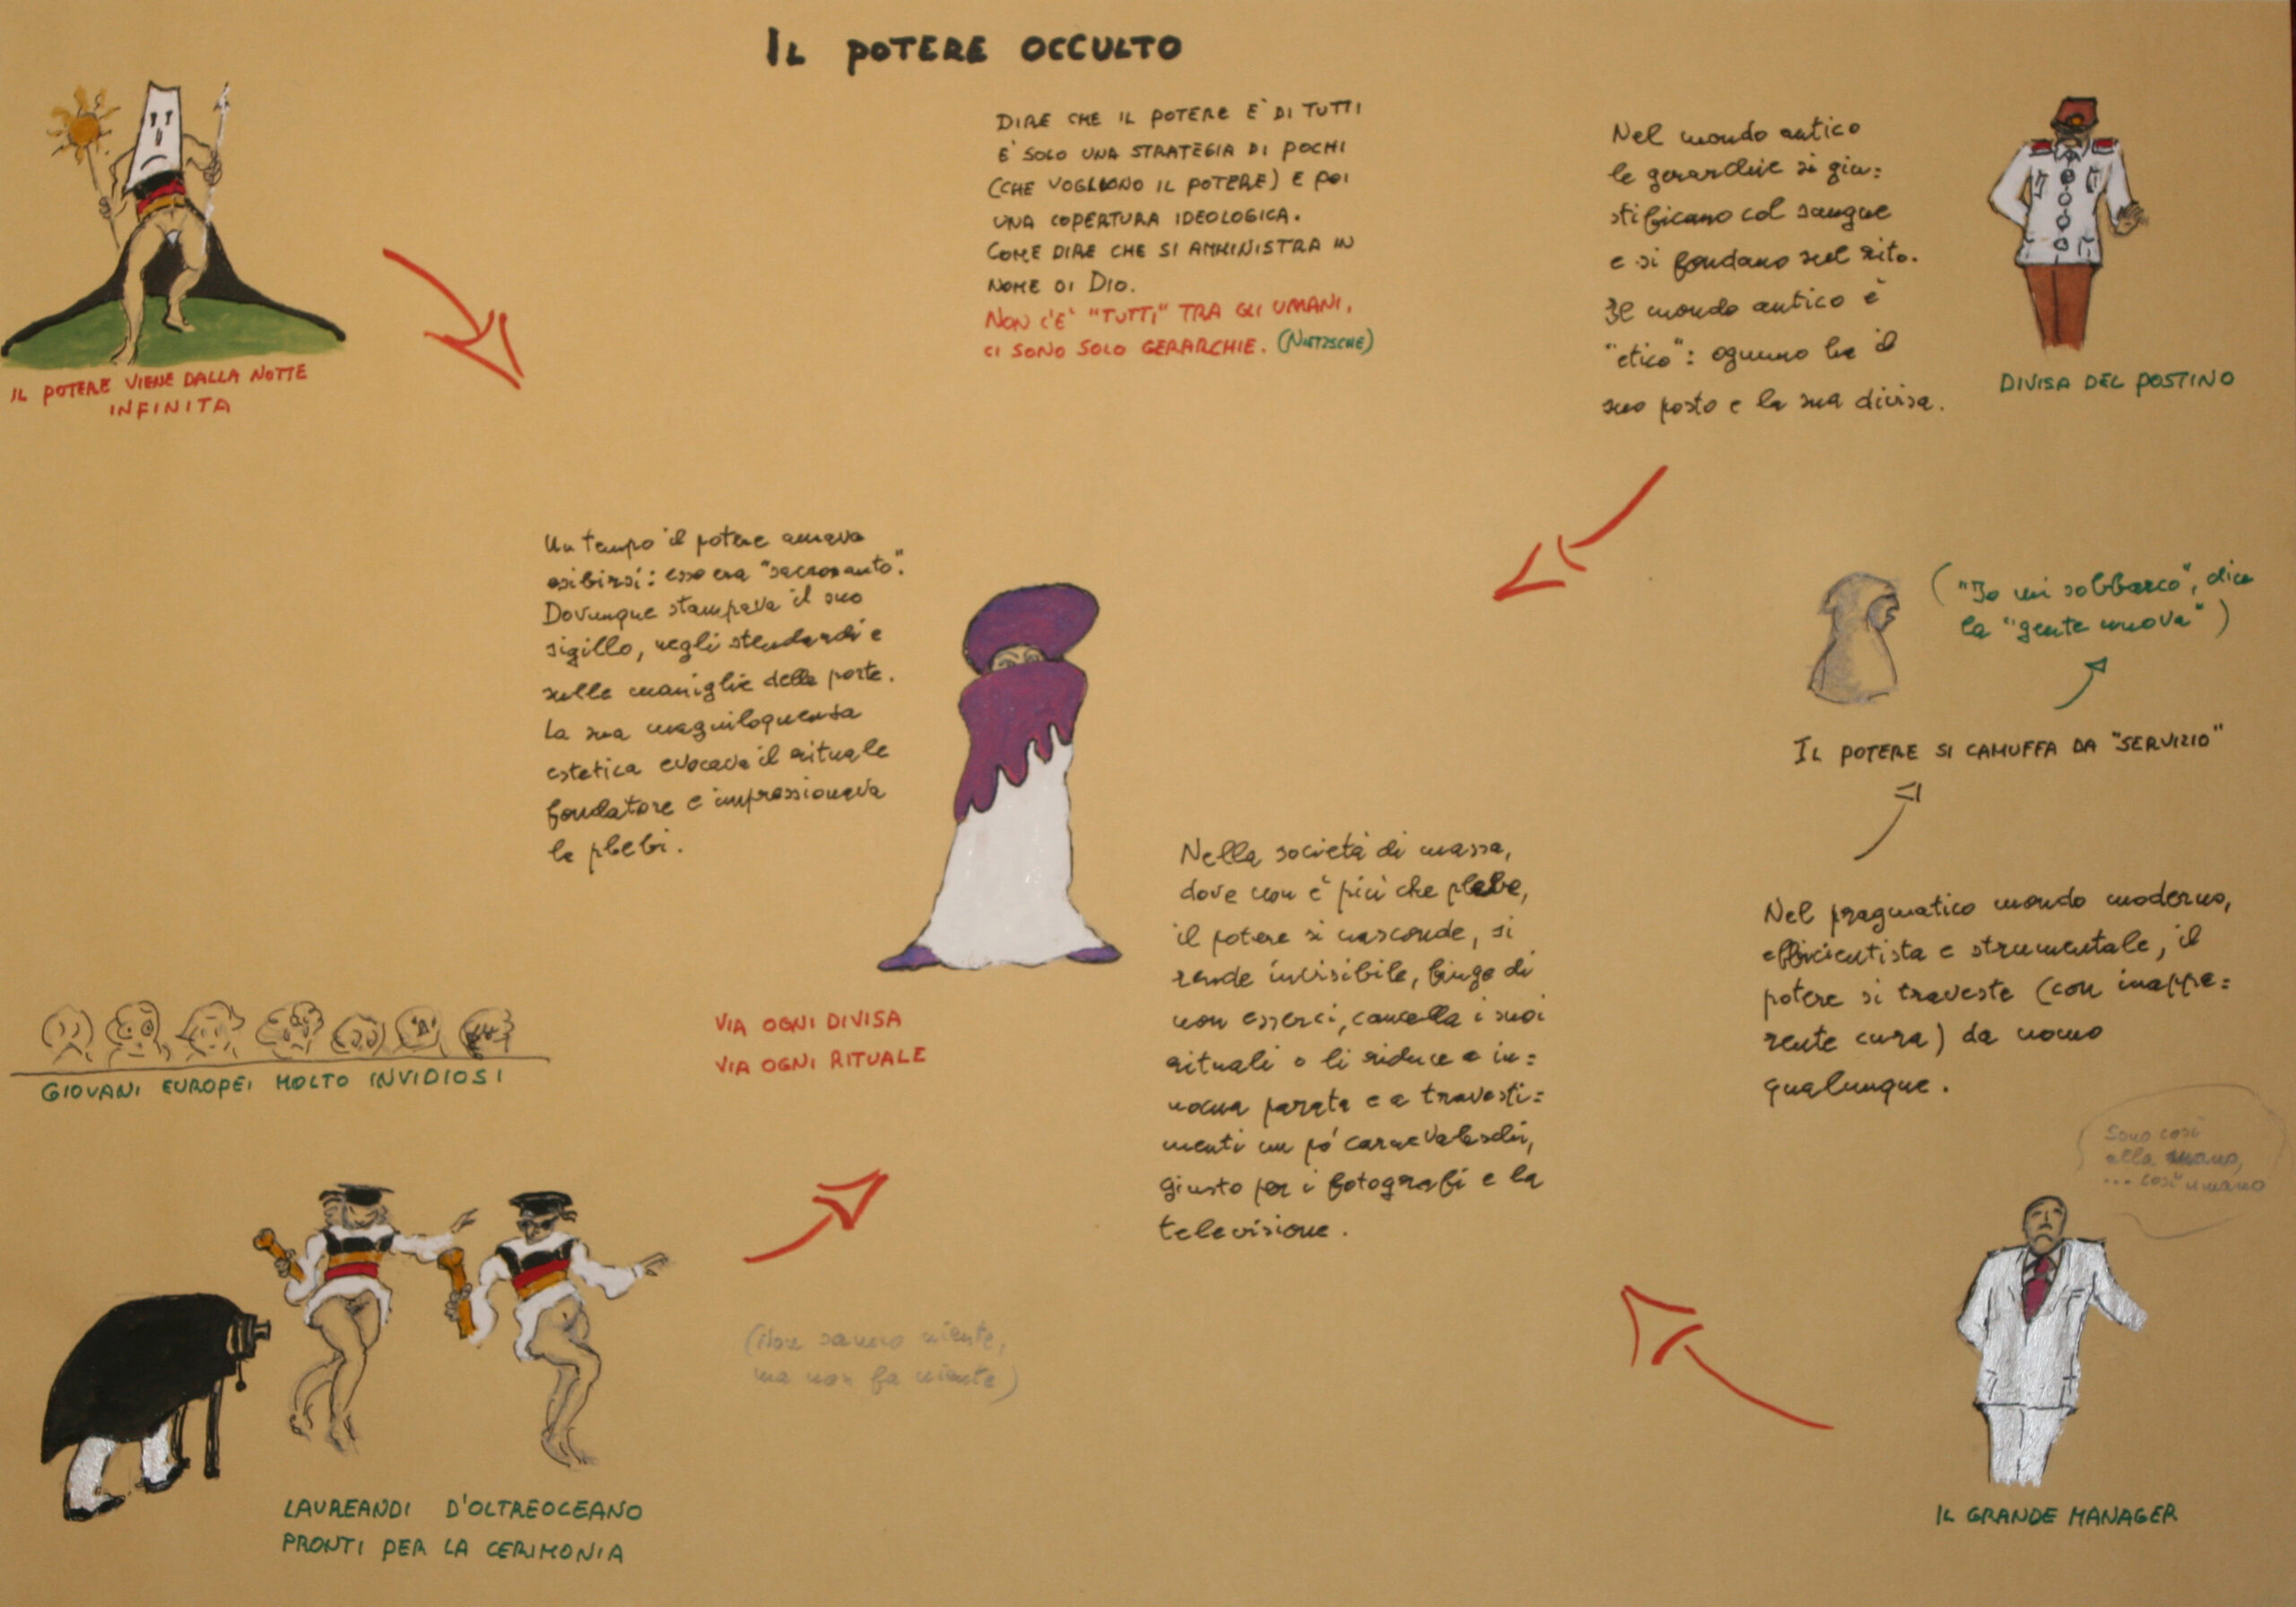 IL POTERE OCCULTO
IL POTERE VIENE DALLA NOTTE
INFINITA
DIRE CHE IL POTERE E' DI TUTTI
E' SOLO UNA STRATEGIA DI POCHI
(CHE VOGLIONO IL POTERE) E POI
UNA COPERTURA IDEOLOGICA.
COME DIRE CHE SI AMMINISTRA IN
NOME DI DIO.
NON C'E' "TUTTI" TRA GLI UMANI,
CI SONO SOLO GERARCHIE. (NIETZSCHE)
Nel mondo antico
le gerarchie si giu=
stificano col sangue
e si fondano sul rito.
Il mondo antico è
"etico": ognuno ha il
suo posto e la sua divisa.
DIVISA DEL POSTINO
Un tempo il potere amava
esibirsi: esso era "sacrosanto".
Dovunque stampava il suo
sigillo, negli stendardi e
sulle maniglie delle porte.
La sua magniloquenza
estetica evocava il rituale
fondatore e impressionava
le plebi.
("Io mi sobbarco", dice
la "gente nuova")
IL POTERE SI CAMUFFA DA "SERVIZIO"
Nella società di massa,
dove non è più che plebe,
il potere si nasconde, si
rende invisibile, finge di
non esserci, cancella i suoi
rituali o li riduce a in=
nocua parata e a travesti=
menti un pò carnevaleschi,
giusto per i fotografi e la
televisione.
Nel pragmatico mondo moderno,
efficientista e strumentale, il
potere si traveste (con inappa=
rente cura) da uomo
qualunque.
VIA OGNI DIVISA
VIA OGNI RITUALE
GIOVANI EUROPEI MOLTO INVIDIOSI
Sono così
alla mano,
... così umano
(Non sanno niente,
ma non fa niente)
LAUREANDI D'OLTREOCEANO
PRONTI PER LA CERIMONIA
IL GRANDE MANAGER